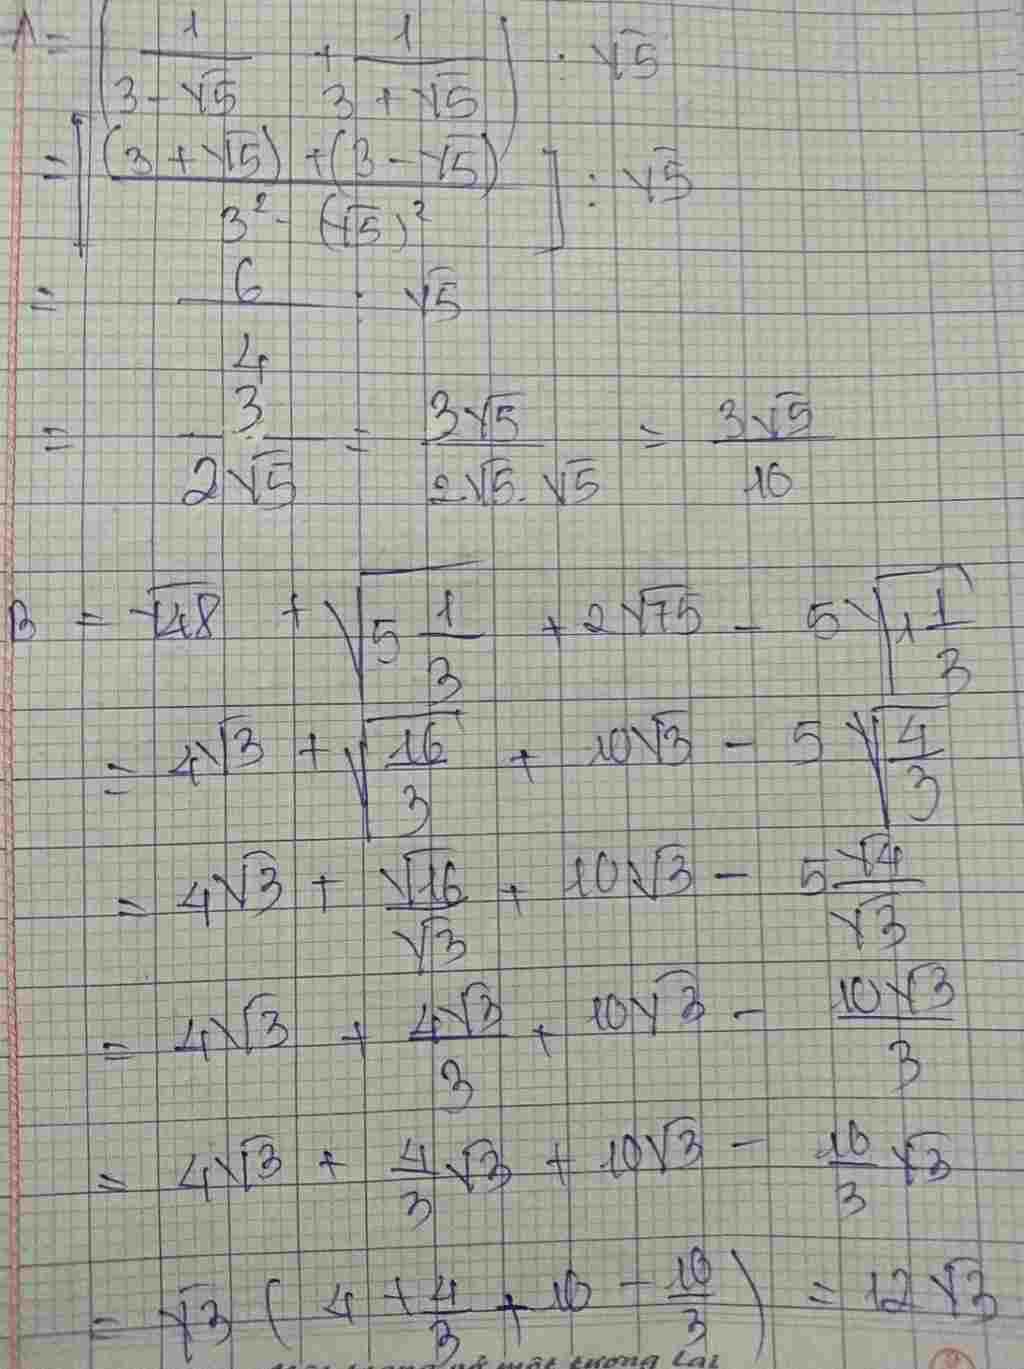 A = (1/(3 - √5) + 1/(3 + √5)) : √5
= [((3 + √5) + (3 - √5))/(3² - (√5)²)] : √5
= 6/4 : √5
= 3/(2√5) = 3√5/(2√5 . √5) = 3√5/10
B = √48 + √(5 1/3) + 2√75 - 5√(1 1/3)
= 4√3 + √(16/3) + 10√3 - 5√(4/3)
= 4√3 + √16/√3 + 10√3 - 5 √4/√3
= 4√3 + 4√3/3 + 10√3 - 10√3/3
= 4√3 + 4/3 √3 + 10√3 - 10/3 √3
= √3 (4 + 4/3 + 10 - 10/3) = 12√3
một tương lai